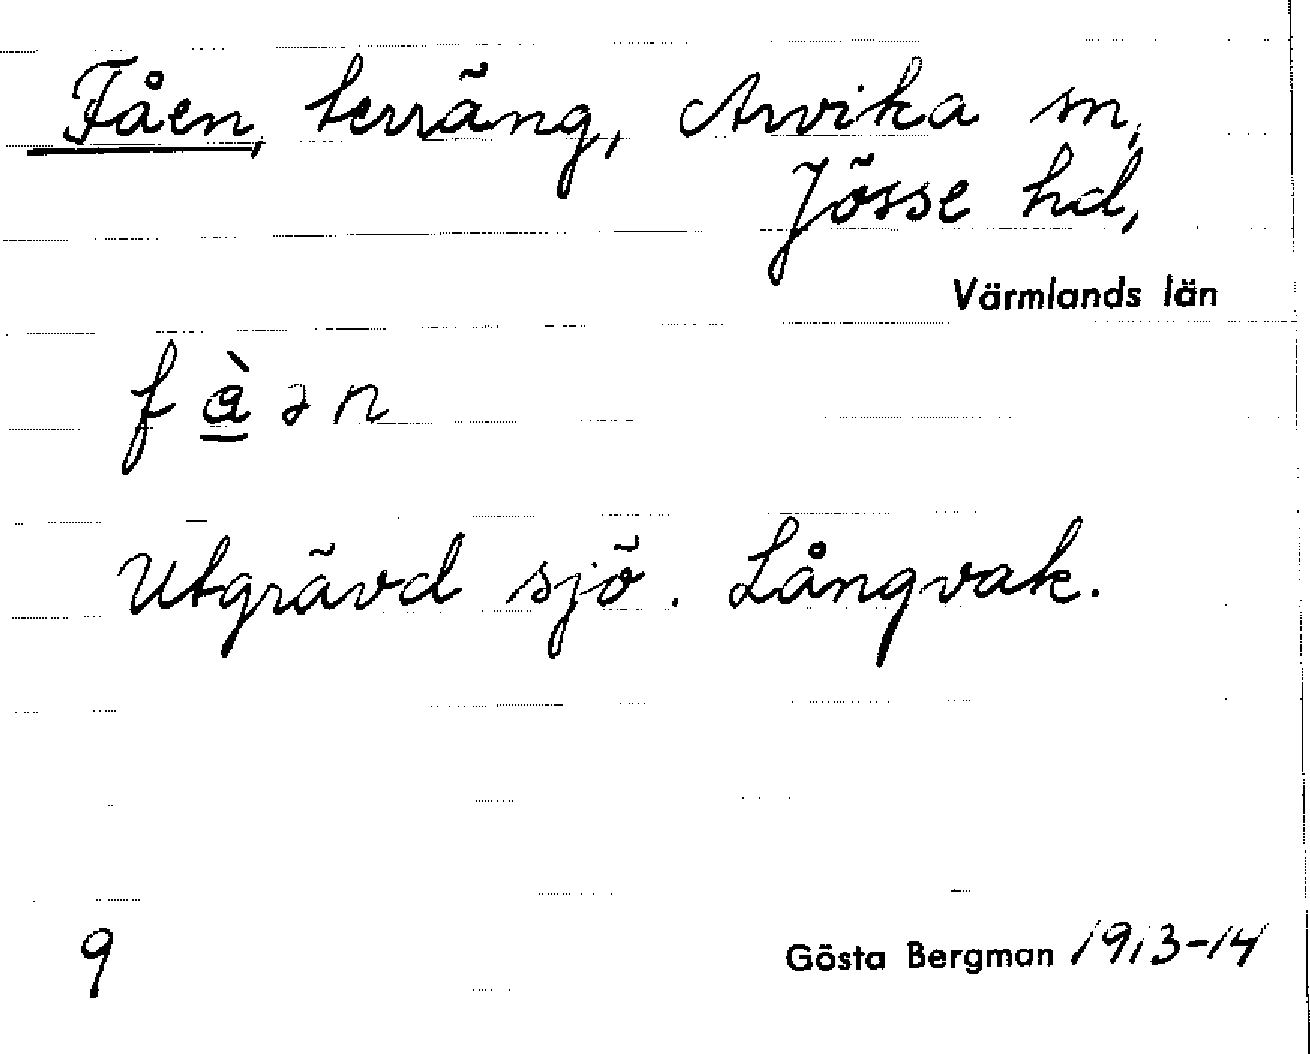 Fåen, terräng, Arvika sn,
Jösse hd,
Värmlands län
Utgrävd sjö. Långvak.
9
Gösta Bergman 1913-14